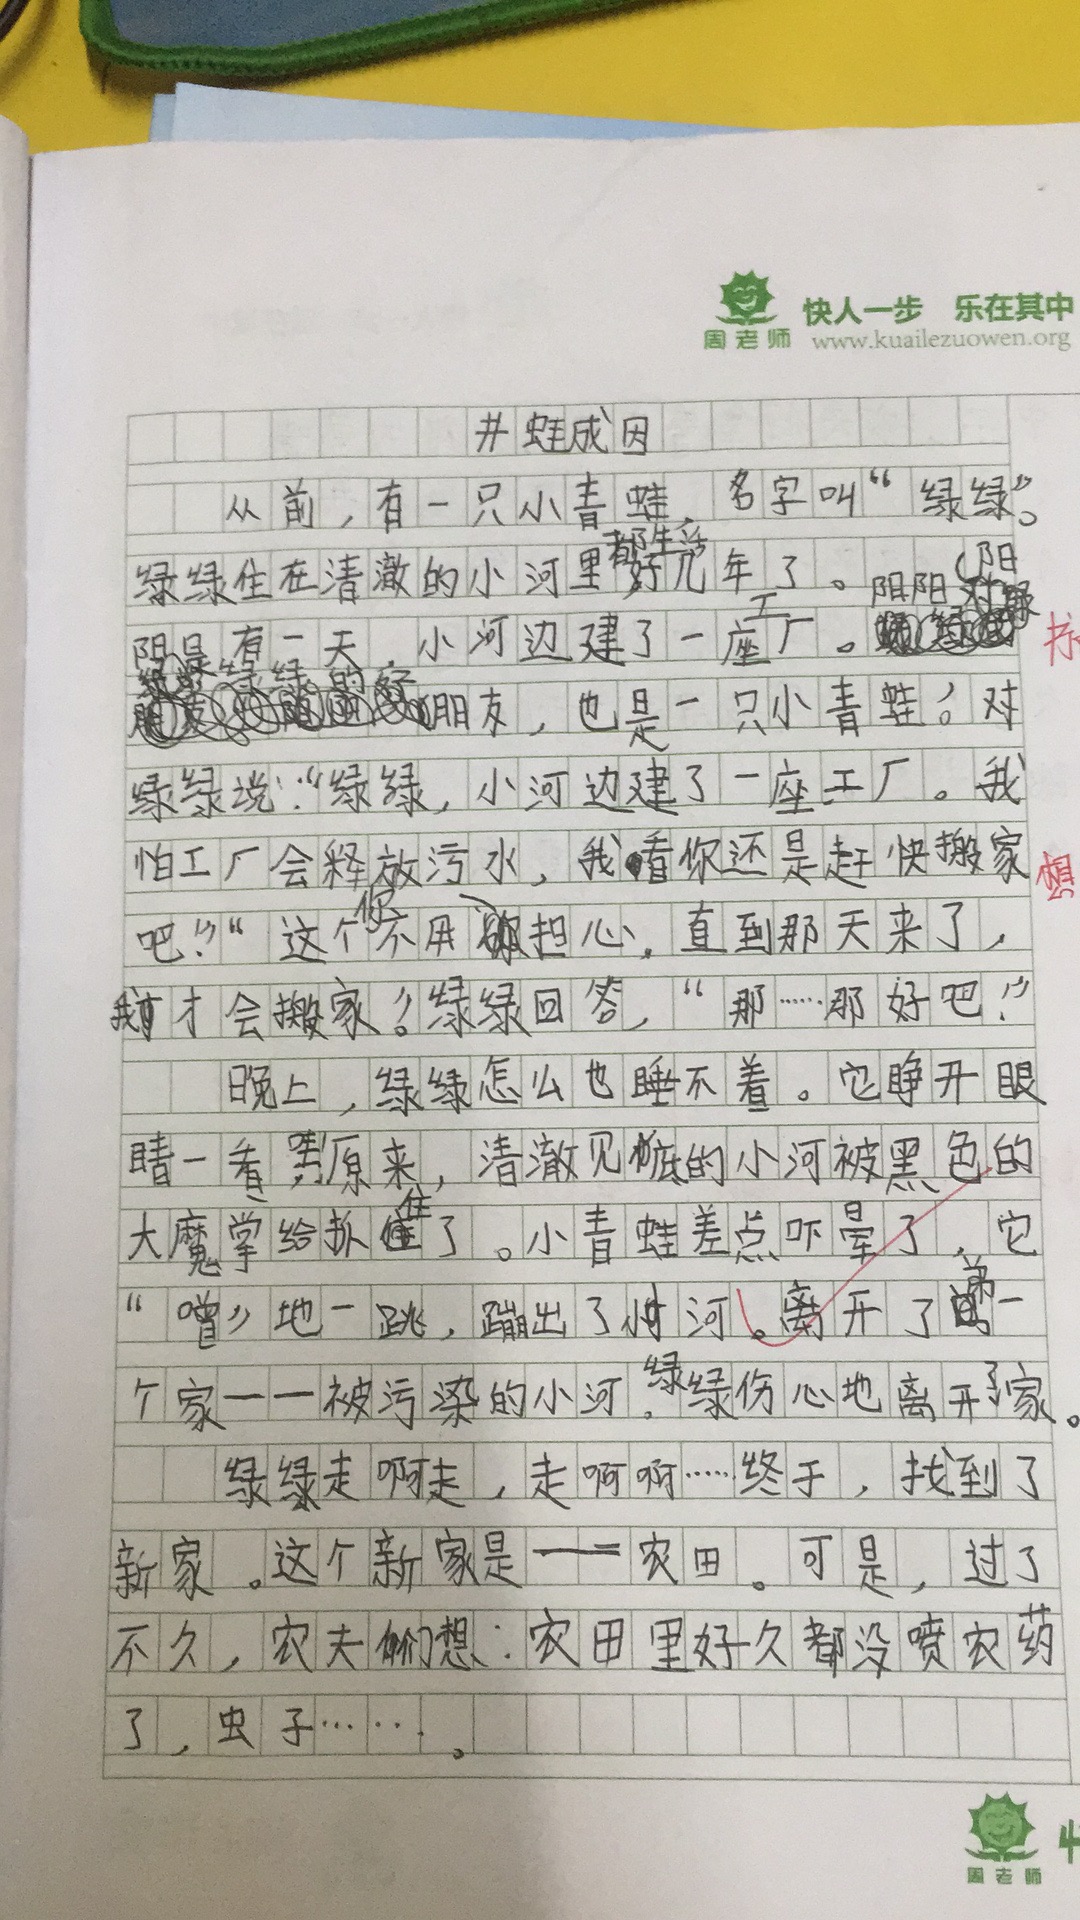 快人一步 乐在其中
周老师 www.kuailezuowen.org
井蛙成因
从前，有一只小青蛙，名字叫“绿绿”。
都生活
绿绿住在清澈的小河里好几年了。（阳
工 阳阳对
阴是有一天，小河边建了一座厂。
绿绿的好
朋友，也是一只小青蛙！对
绿绿说：“绿绿，小河边建了一座工厂。我
怕工厂会释放污水，我看你还是赶快搬家
想
你
吧！”“这个不用担心，直到那天来了，
我才会搬家！绿绿回答，“那……那好吧！”
晚上，绿绿怎么也睡不着。它睁开眼
睛一看，原来，清澈见底的小河被黑色的
住
大魔掌给扒了。小青蛙差点吓晕了，它
第
“噌”地一跳，蹦出了小河。离开了一
个家——被污染的小河。绿绿伤心地离开了家。
绿绿走啊走，走啊啊……终于，找到了
新家。这个新家是——农田。可是，过了
不久，农夫们想：农田里好久都没喷农药
了，虫子……。
周老师